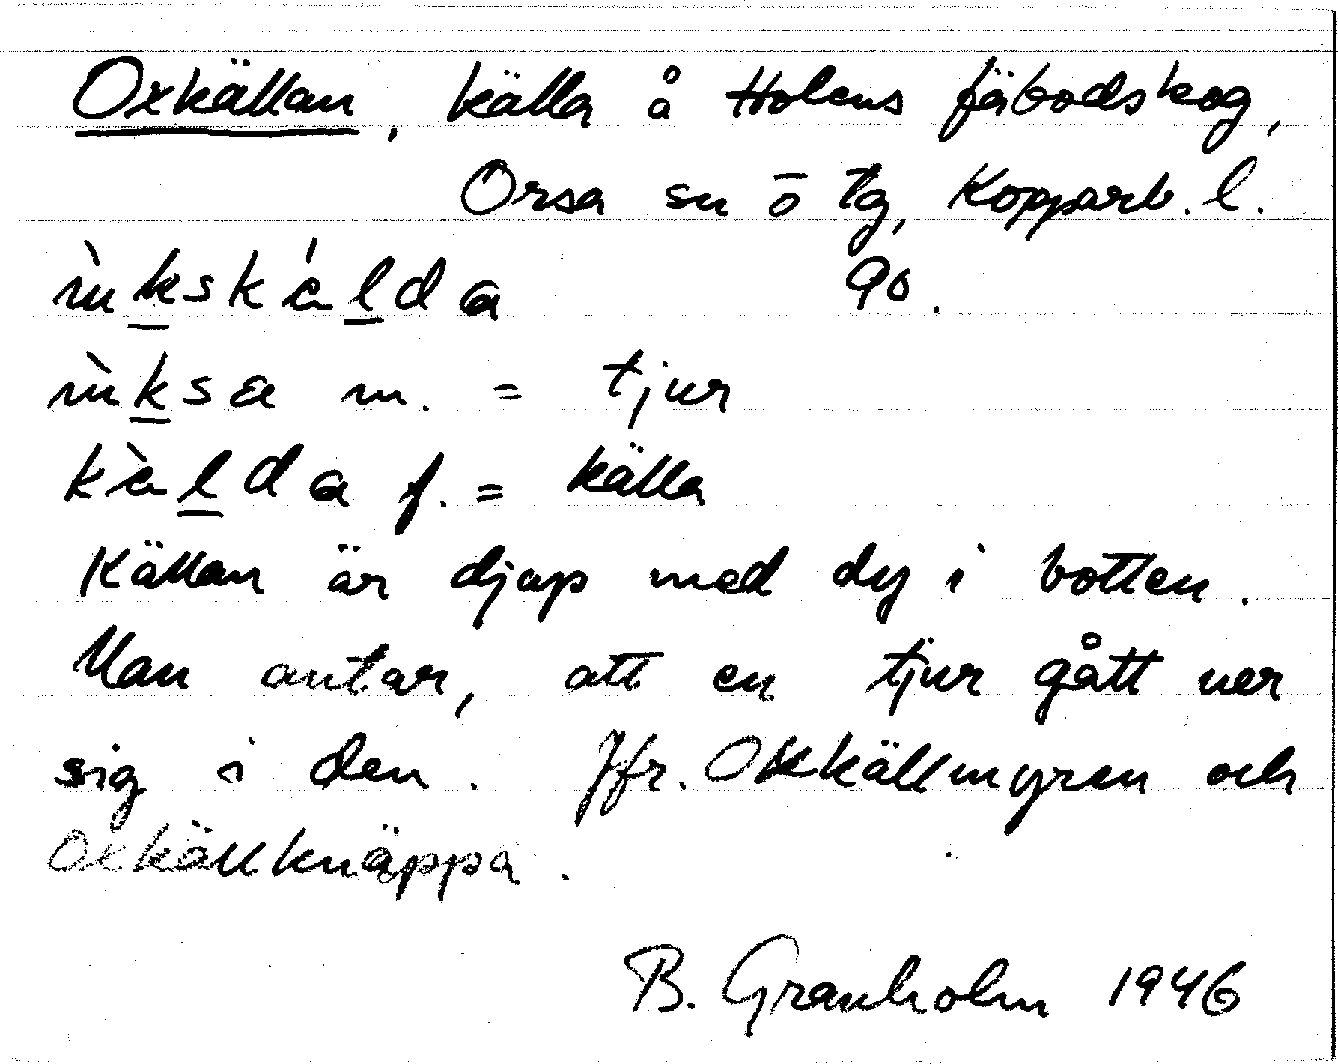 Oxkällan, källa å Holens fäbodskog,
Orsa sn ō tg, Kopparb. l.
90.
m. = tjur
f. = källa
Källan är djup med dy i botten.
Man antar, att en tjur gått ner
sig i den. Jfr. Oxkällmyren och
Oxkällknäppa.
B. Granholm 1946